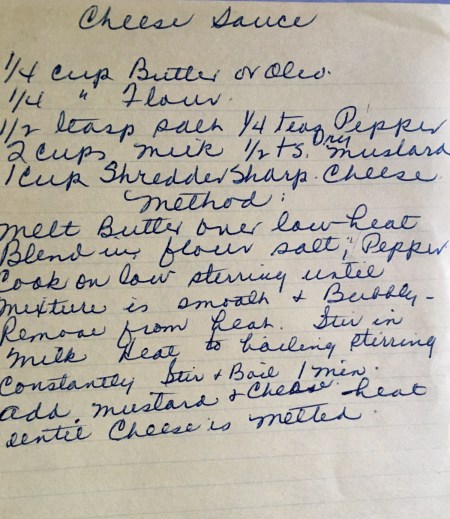 Cheese Sauce
1/4 cup Butter or Oleo.
1/4 " Flour.
1/2 teasp salt 1/4 teas Pepper
2 cups milk 1/2 ts. Dry Mustard
1 cup Shredded Sharp. Cheese.
Method:
Melt Butter over low heat
Blend in, flour salt, Pepper
Cook on low stirring until
mixture is smooth & Bubbly -
Remove from heat. Stir in
Milk Heat to boiling stirring
Constantly Stir & Boil 1 min.
add mustard & Cheese heat
until Cheese is melted.